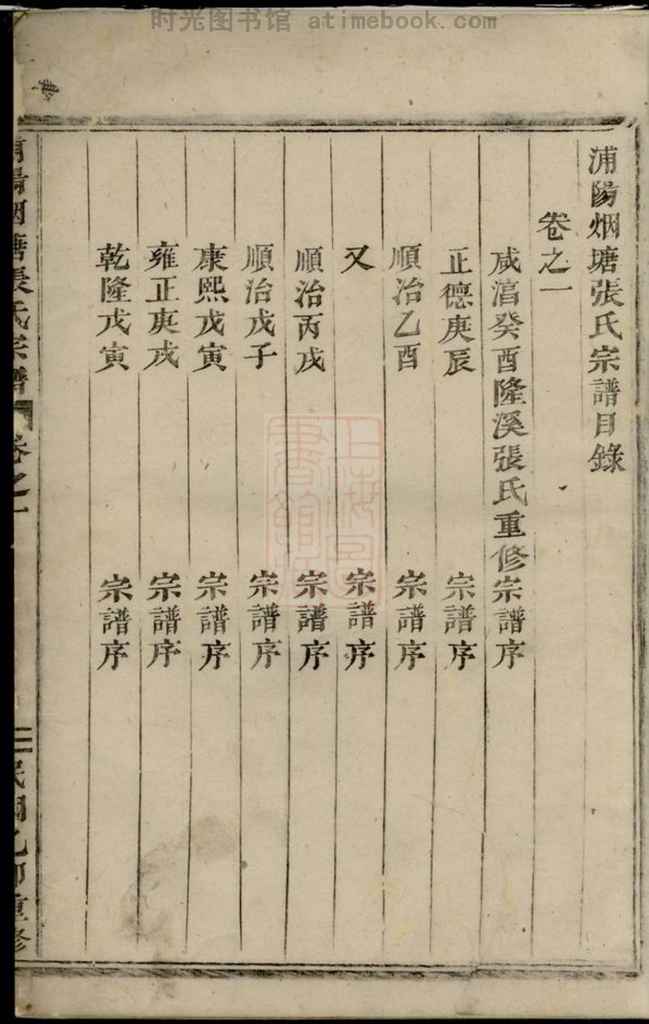 时光图书馆 atimebook.com
浦陽烟塘張氏宗譜目錄
卷之一
咸淳癸酉隆溪張氏重修宗譜序
正德庚辰 宗譜序
順治乙酉 宗譜序
又 宗譜序
順治丙戌 宗譜序
順治戊子 宗譜序
康熙戊寅 宗譜序
雍正庚戌 宗譜序
乾隆戊寅 宗譜序
浦陽烟塘張氏宗譜 卷之一 二 民國乙卯重修